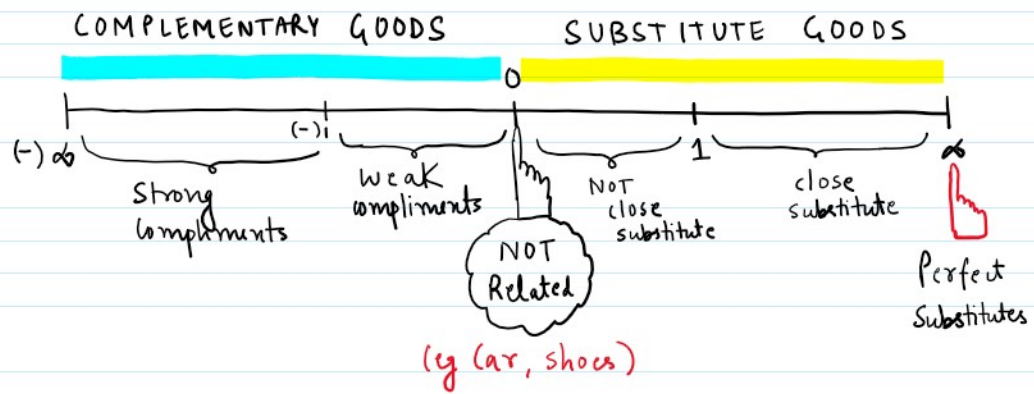 COMPLEMENTARY GOODS
SUBSTITUTE GOODS
0
(-) ∞
(-)1
1
∞
Strong
Compliments
weak
compliments
NOT
close
substitute
close
substitute
NOT
Related
Perfect
Substitutes
(eg Car, shoes)